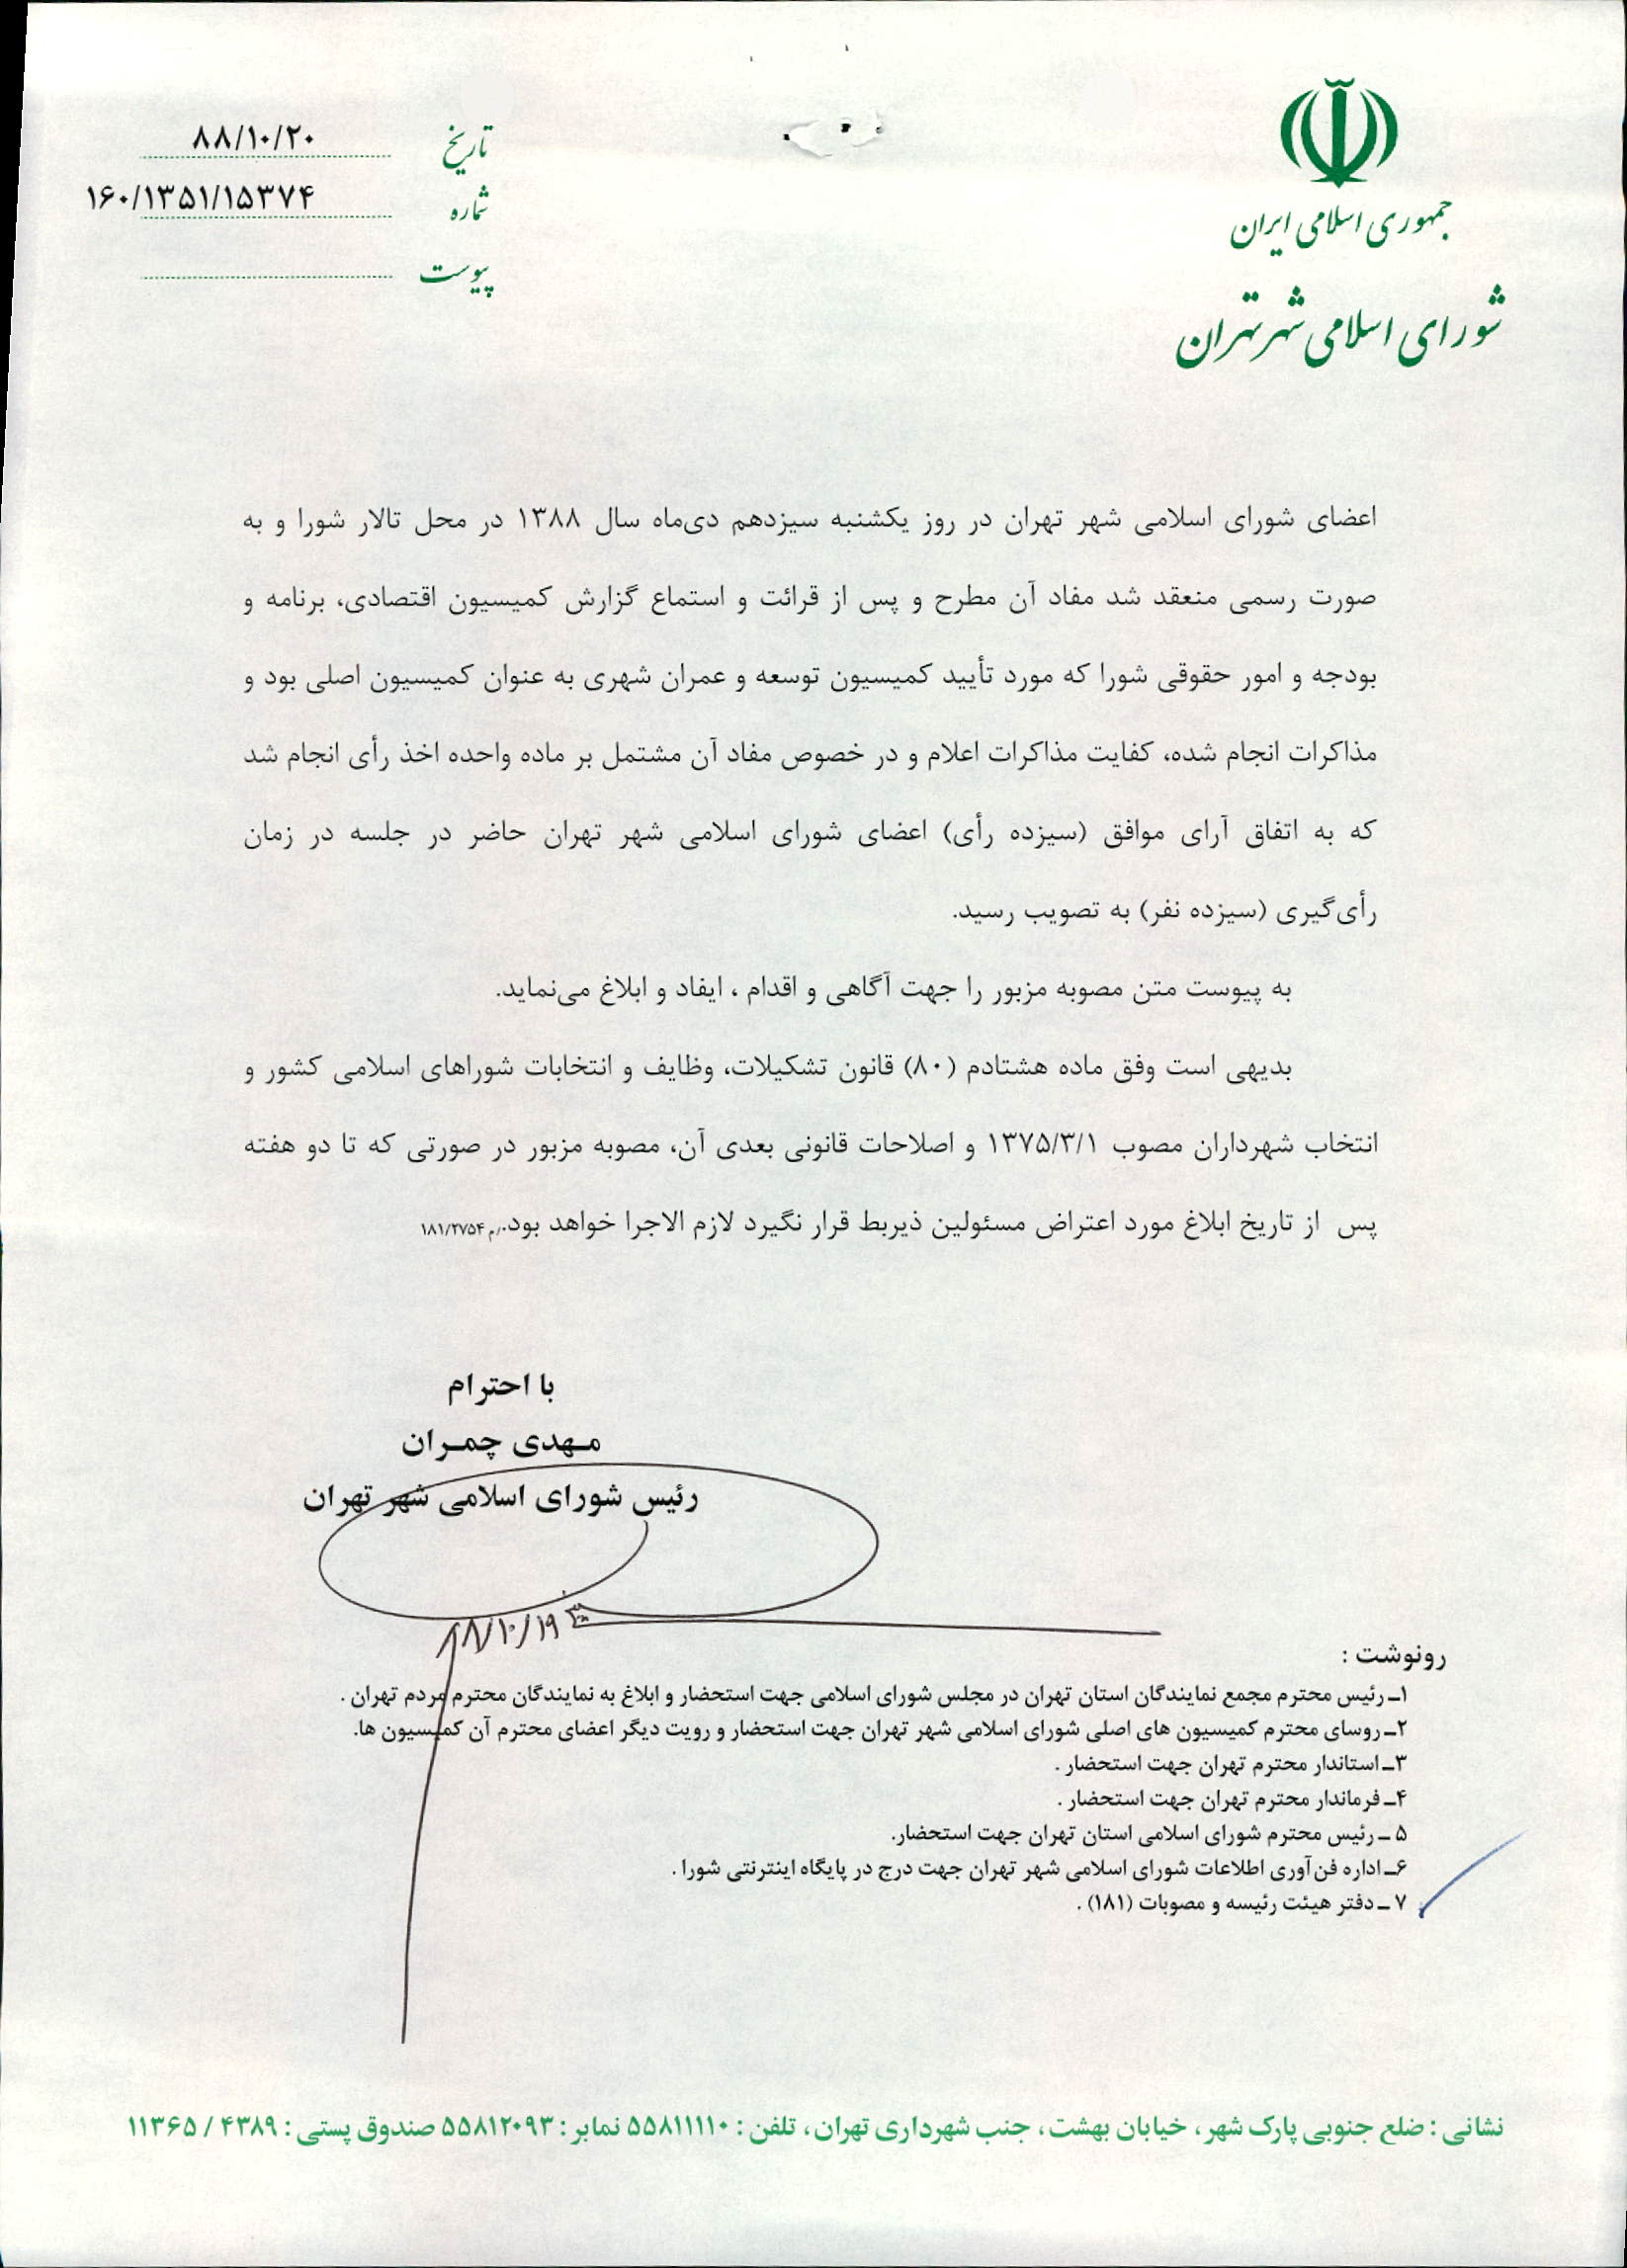 جمهوری اسلامی ایران
شورای اسلامی شهر تهران
تاریخ ۸۸/۱۰/۲۰
شماره ۱۶۰/۱۳۵۱/۱۵۳۷۴
پیوست
اعضای شورای اسلامی شهر تهران در روز یکشنبه سیزدهم دی‌ماه سال ۱۳۸۸ در محل تالار شورا و به
صورت رسمی منعقد شد مفاد آن مطرح و پس از قرائت و استماع گزارش کمیسیون اقتصادی، برنامه و
بودجه و امور حقوقی شورا که مورد تأیید کمیسیون توسعه و عمران شهری به عنوان کمیسیون اصلی بود و
مذاکرات انجام شده، کفایت مذاکرات اعلام و در خصوص مفاد آن مشتمل بر ماده واحده اخذ رأی انجام شد
که به اتفاق آرای موافق (سیزده رأی) اعضای شورای اسلامی شهر تهران حاضر در جلسه در زمان
رأی‌گیری (سیزده نفر) به تصویب رسید.
به پیوست متن مصوبه مزبور را جهت آگاهی و اقدام ، ایفاد و ابلاغ می‌نماید.
بدیهی است وفق ماده هشتادم (۸۰) قانون تشکیلات، وظایف و انتخابات شوراهای اسلامی کشور و
انتخاب شهرداران مصوب ۱۳۷۵/۳/۱ و اصلاحات قانونی بعدی آن، مصوبه مزبور در صورتی که تا دو هفته
پس از تاریخ ابلاغ مورد اعتراض مسئولین ذیربط قرار نگیرد لازم الاجرا خواهد بود./م ۱۸۱/۲۷۵۴
با احترام
مـهدی چمـران
رئیس شورای اسلامی شهر تهران
۸۸/۱۰/۱۹
رونوشت :
۱ـ رئیس محترم مجمع نمایندگان استان تهران در مجلس شورای اسلامی جهت استحضار و ابلاغ به نمایندگان محترم مردم تهران .
۲ـ روسای محترم کمیسیون های اصلی شورای اسلامی شهر تهران جهت استحضار و رویت دیگر اعضای محترم آن کمیسیون ها.
۳ـ استاندار محترم تهران جهت استحضار .
۴ـ فرماندار محترم تهران جهت استحضار .
۵ ـ رئیس محترم شورای اسلامی استان تهران جهت استحضار.
۶ـ اداره فن‌آوری اطلاعات شورای اسلامی شهر تهران جهت درج در پایگاه اینترنتی شورا .
۷ ـ دفتر هیئت رئیسه و مصوبات (۱۸۱) .
نشانی : ضلع جنوبی پارک شهر ، خیابان بهشت ، جنب شهرداری تهران ، تلفن : ۵۵۸۱۱۱۱۰ نمابر : ۵۵۸۱۲۰۹۳ صندوق پستی : ۴۳۸۹ / ۱۱۳۶۵